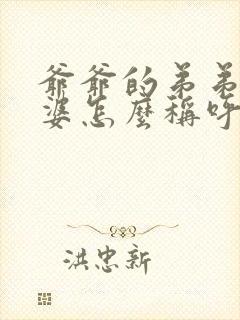 爺爺的弟弟
婆怎麼稱呼
洪忠新